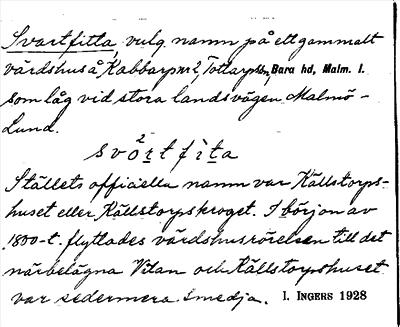 Svartfitta, vulg. namn på ett gammalt
värdshus å Kabbarp nr 2, Tottarps sn, Bara hd, Malm. l.
som låg vid stora landsvägen Malmö –
Lund.
Ställets officiella namn var Källstorps-
huset eller Källstorpskroget. I början av
1800-t. flyttades värdshusrörelsen till det
närbelägna Vitan och Källstorpshuset
var sedermera smedja. I. INGERS 1928